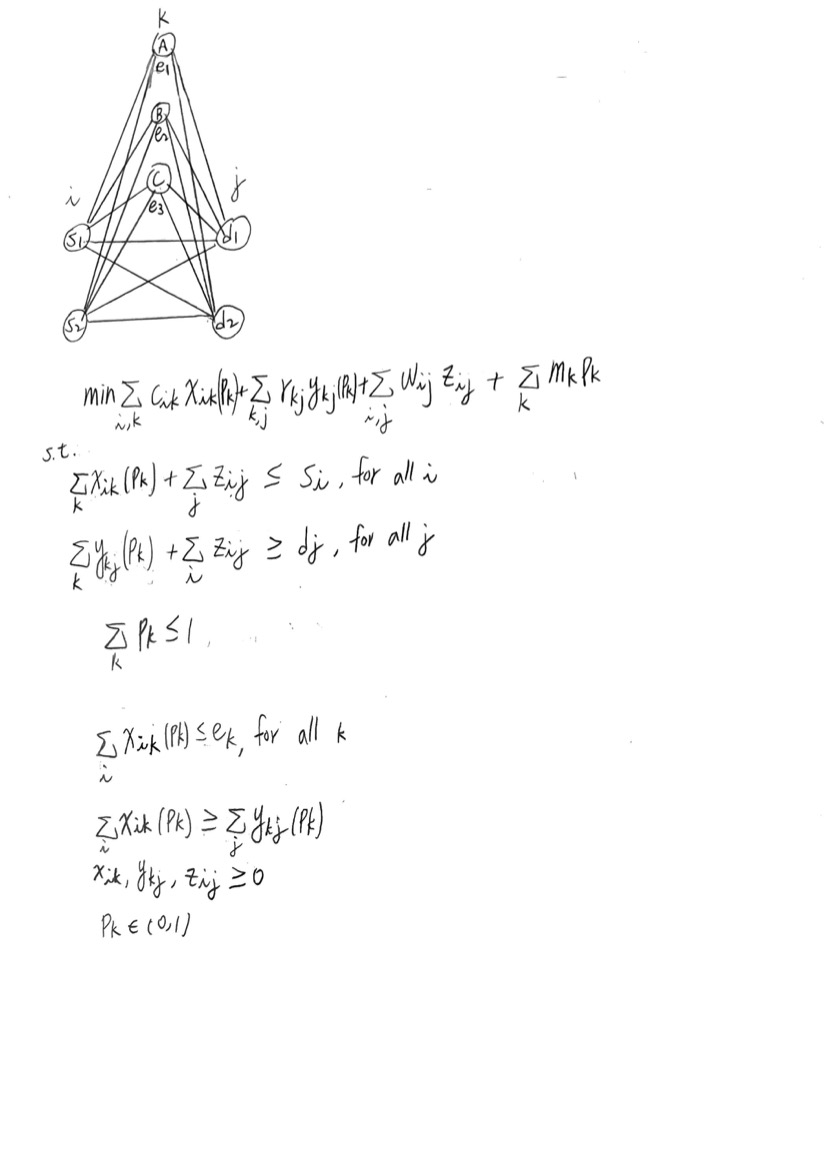 k
A
e1
B
e2
C
i j
e3
s1 d1
s2 d2
min Σ_{i,k} C_{ik} X_{ik}(P_k) + Σ_{k,j} r_{kj} y_{kj}(P_k) + Σ_{i,j} W_{ij} Z_{ij} + Σ_k m_k P_k
s.t.
Σ_k X_{ik}(P_k) + Σ_j Z_{ij} ≤ S_i, for all i
Σ_k y_{kj}(P_k) + Σ_i Z_{ij} ≥ d_j, for all j
Σ_k P_k ≤ 1,
Σ_i X_{ik}(P_k) ≤ e_k, for all k
Σ_i X_{ik}(P_k) ≥ Σ_j y_{kj}(P_k)
X_{ik}, y_{kj}, Z_{ij} ≥ 0
P_k ∈ (0,1)